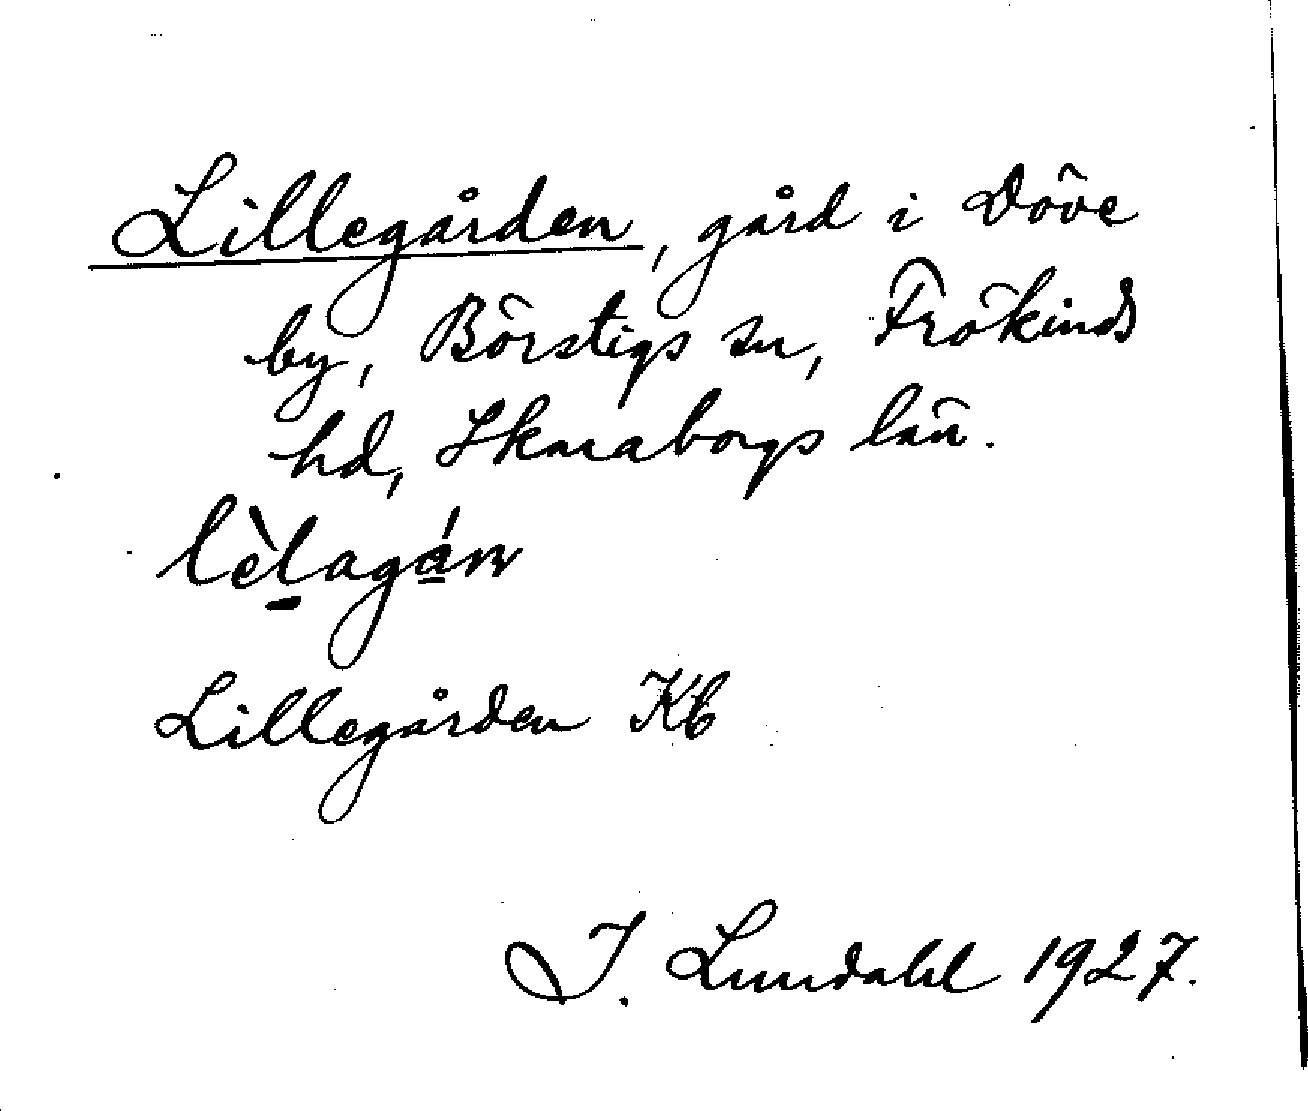 Lillegården, gård i Döve
by, Börstigs sn, Frökinds
hd, Skaraborgs län.
lèḻagá̱n
Lillegården Kb
I. Lundahl 1927.